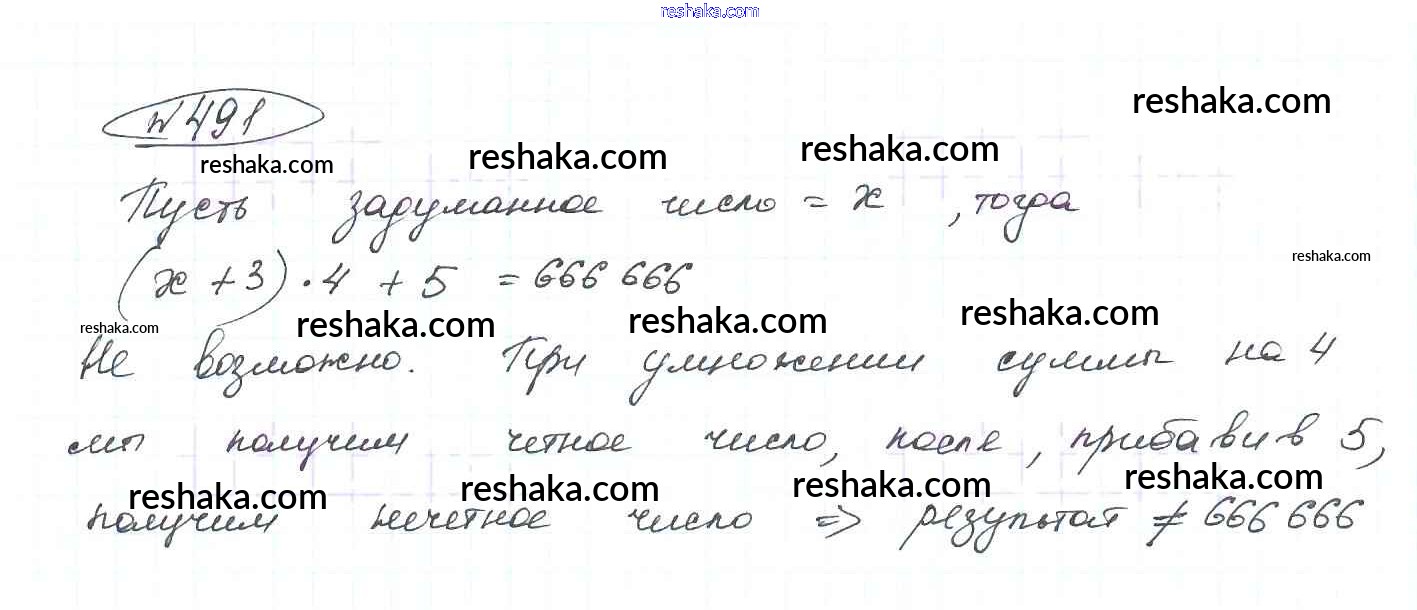 reshaka.com
№ 491
reshaka.com
reshaka.com reshaka.com reshaka.com
Пусть задуманное число = x , тогда
(x + 3) · 4 + 5 = 666 666
reshaka.com
reshaka.com reshaka.com reshaka.com reshaka.com
Не возможно. При умножении суммы на 4
мы получим четное число, после, прибавив 5,
reshaka.com reshaka.com reshaka.com reshaka.com
получим нечетное число => результат ≠ 666 666